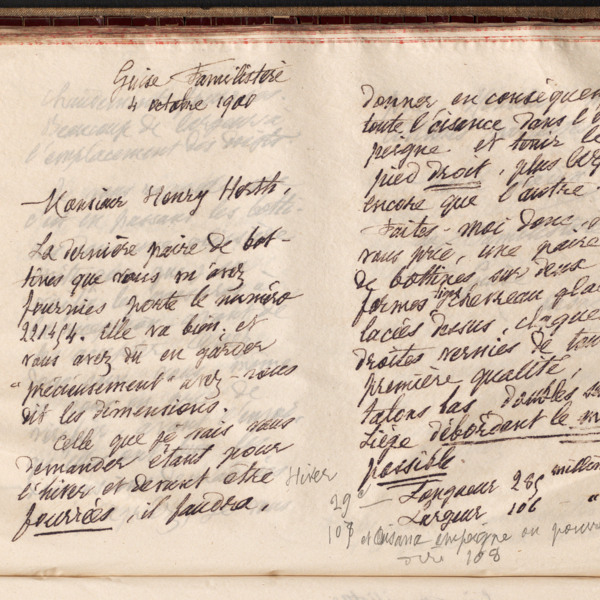 Guise Familistère
4 octobre 1900
Monsieur Henry Horth,
La dernière paire de bot-
tines que vous m'avez
fournies porte le numéro
221454. Elle va bien, et
vous avez dû en garder
"précieusement" avez-vous
dit les dimensions.
Celle que je vais vous
demander étant pour
l'hiver et devant être
fourrées, il faudra,
donner en conséquen
toute l'aisance dans l'
peigne et tenir le
pied droit, plus large
encore que l'autre.
Faites-moi donc,
vous prie, une paire
de bottines, sur deux
formes chevreau gla
lacées dessus,
droites vernies de tou
première qualité,
talons bas, doubles
liège débordant le
possible.
Hiver
29c — Longueur 285 millim
107 Largeur 106 — "
et aisance empeigne on pourra
dire 108